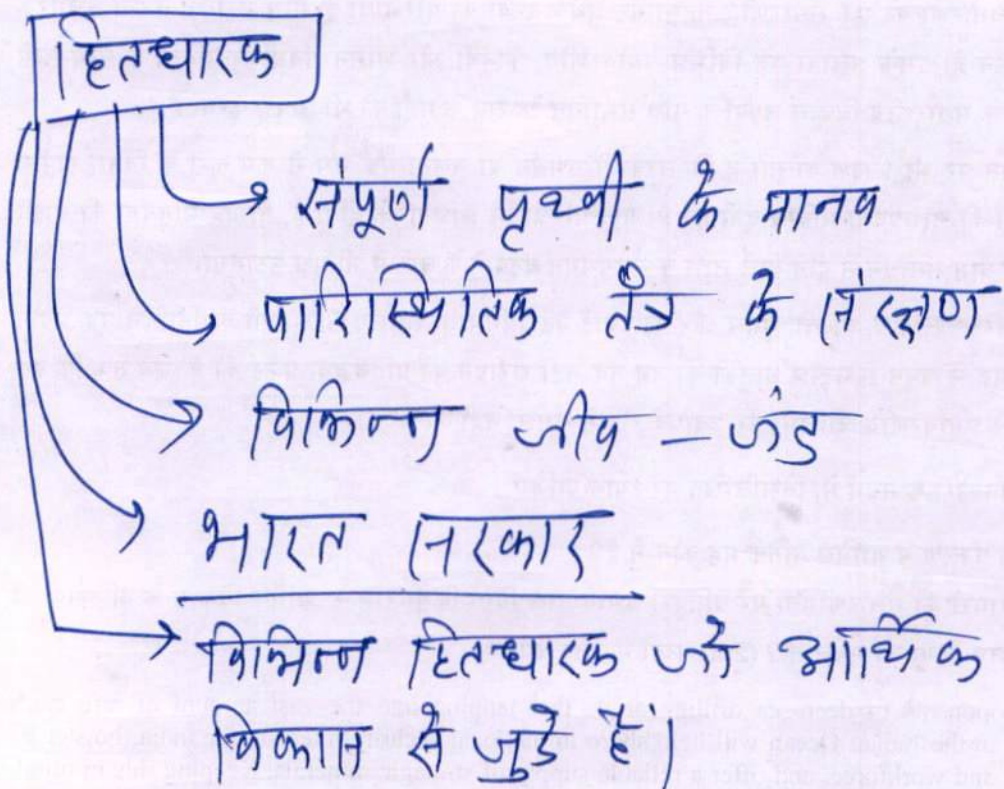 हितधारक
संपूर्ण पृथ्वी के मानव
पारिस्थितिक तंत्र के संरक्षण
विभिन्न जीव - जंतु
भारत सरकार
विभिन्न हितधारक जो आर्थिक
विकास से जुड़े हैं।